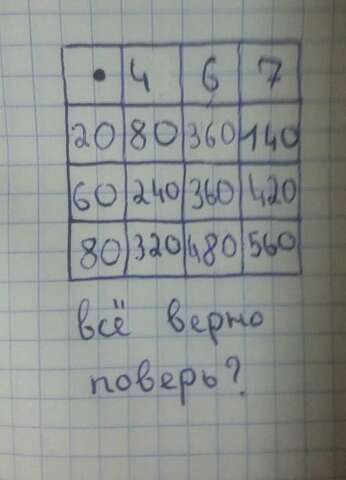 • 4 6 7
20 80 360 140
60 240 360 420
80 320 480 560
всё верно
поверь?